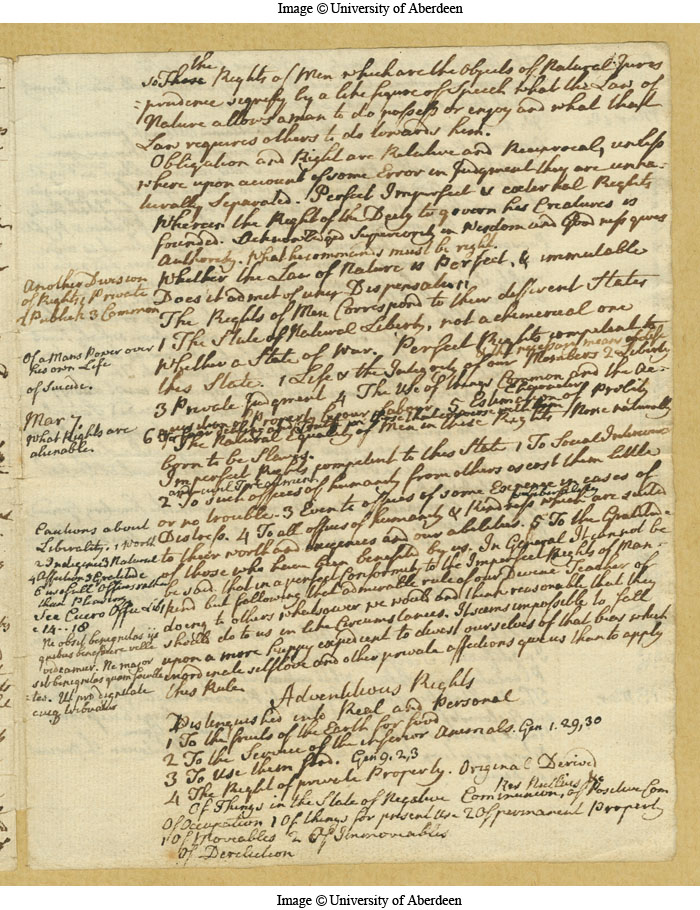 Image © University of Aberdeen
so These the Rights of Men which are the Objects of Natural Juris
=prudence signify by a like figure of Speech what the Law of
Nature allows a man to do possess or enjoy and what that
Law requires others to do towards him.
Obligation and Right are Relative and Reciprocal, unless
where upon account of some Error in Judgment they are unna=
turally Separated. Perfect Imperfect & external Rights
Wherein the Right of the Deity to govern his Creatures is
founded. Acknowledged Superiority in Wisdom and Goodness gives
Authority. What he commands must be right.
Whether the Law of Nature is Perfect, & immutable
Does it admit of any Dispensation
The Rights of Men Correspond to their different States
1 The State of Natural Liberty, not a chimerical one
Whether a State of War. Perfect Rights competent to
this State. 1 Life & the Integrity of our Members 2 Liberty
3 Private Judgment 4 The Use of things Common and the Ac=
quisition of Property by our Labour 5 Estimation of Probity
6
The Natural Equality of Men in these Rights / None naturally
born to be Slaves.
Imperfect Rights competent to this State 1 To Social Intercourse
2 To such offices of humanity from others as cost them little
or no trouble. 3 Even to offices of some Expence in cases of
Distress. 4 To all offices of humanity & Kindness which are suited
to their worth and indigences and our abilities. 5 To the Gratitude
of those who have been benefited by us. In General It cannot be
be said that in a perfect conformity to the Imperfect Rights of Man=
kind but following that admirable rule of our Divine Teacher of
doing to others whatsoever we would and think reasonable that they
should do to us in like Circumstances. It seems impossible to fall
upon a more happy expedient to divest ourselves of that bias which
inordinate selflove and other private affections give us than to apply
this Rule.
Adventitious Rights
Distinguished into Real and Personal
1 To the fruits of the Earth for food
2 To the Service of the inferior Animals. Gen 1. 29, 30
3 To Use them food. Gen 9. 2, 3
4 The Right of private Property. Original Derived
Res Nullius &c
Of Things in the State of Negative Communion, of Positive Com
Of Occupation 1 Of things for present use 2 Of permanent Property
1 Of Moveables 2 Of Immoveables
Of Dereliction
Another Division
of Rights 1 Private
2 Publick 3 Common
Of a Mans Power over
his own Life
of Suicide.
Mar 7.
What Rights are
alienable.
Cautions about
Liberality. 1 Worth
2 Indigence 3 Natural
4 Affection 5 Gratitude
6 usefull Offices rather
than Pleasing
See Cicero Offic L 1
c 14 . . 18
Ne obsit benignitas iis
quibus benefacere velle
videamur. Ne major
sit benignitas quam faculta
tes. Ut pro dignitate
cuiq tribuatur
Image © University of Aberdeen